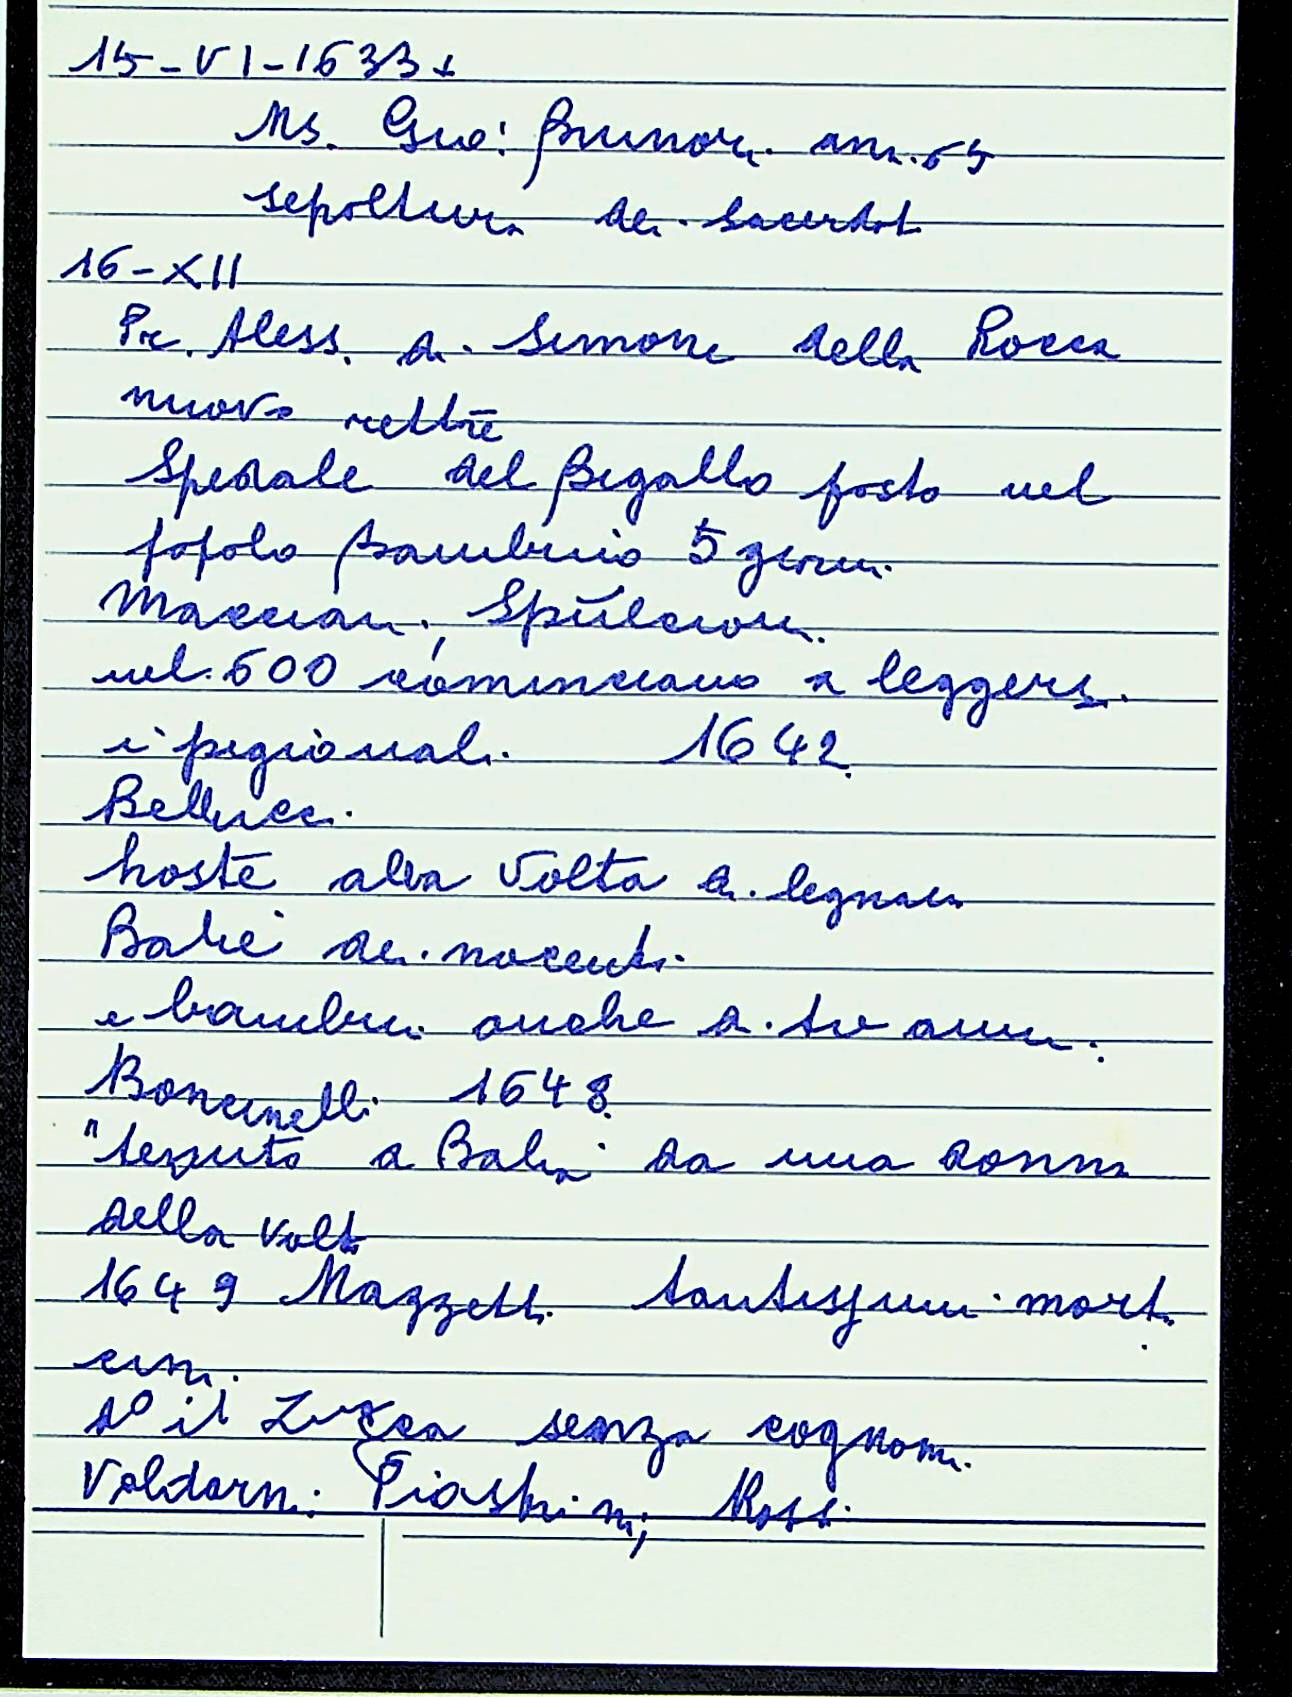 15-VI-1633 +
Ms. Gio: Brunori. ann. 65
sepoltura dei sacerdot
16-XII
Pr. Aless. di Simone della Rocca
nuovo rettre
Spedale del Bigallo posto nel
popolo Bambino 5 giorni.
Macciani, Spulcioni.
nel 600 cominciano a leggersi
i pigionali. 1642.
Bellucci.
hoste alla Volta a legnaia
Balie dei nocenti.
e bambini anche di tre anni.
Boncinelli 1648.
"tenuto a Balia da una donna
della Volta
1649 Mazzetti tantissimi morti
cini.
do il Lucca senza cognome.
Valdarni; Piastrini; Rossi